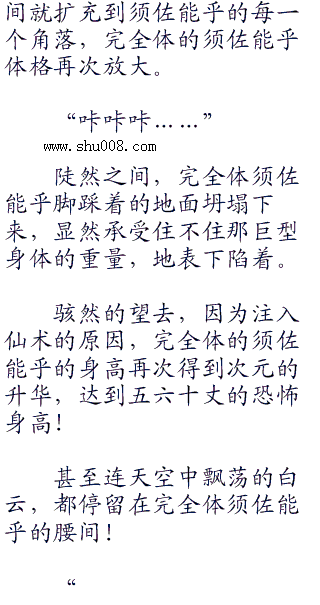 间就扩充到须佐能乎的每一
个角落，完全体的须佐能乎
体格再次放大。
“咔咔咔……”
www.shu008.com
陡然之间，完全体须佐
能乎脚踩着的地面坍塌下
来，显然承受住不住那巨型
身体的重量，地表下陷着。
骇然的望去，因为注入
仙术的原因，完全体的须佐
能乎的身高再次得到次元的
升华，达到五六十丈的恐怖
身高！
甚至连天空中飘荡的白
云，都停留在完全体须佐能
乎的腰间！
“